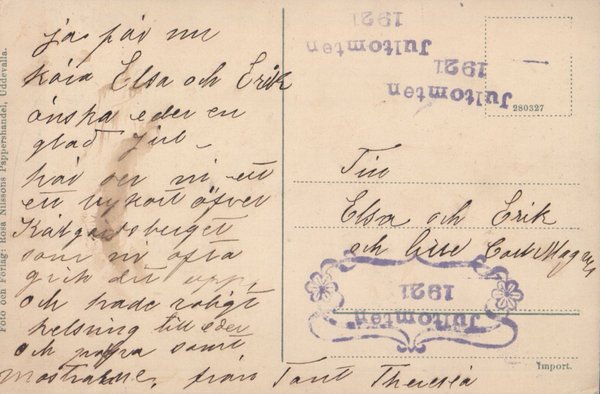 jag får nu
kära Elsa och Erik
önska eder en
glad Jul
här ser ni ett
ett vykort öfver
som ni ofta
gick dit upp,
och hade roligt
helsning till eder
och pappa samt
från Tant Theresia
Foto och Förlag: Rosa Nilssons Pappershandel, Uddevalla.
Jultomten
1921
Jultomten
1921
280327
Till
Elsa och Erik
och lille Carl Magnus
Jultomten
1921
Import.